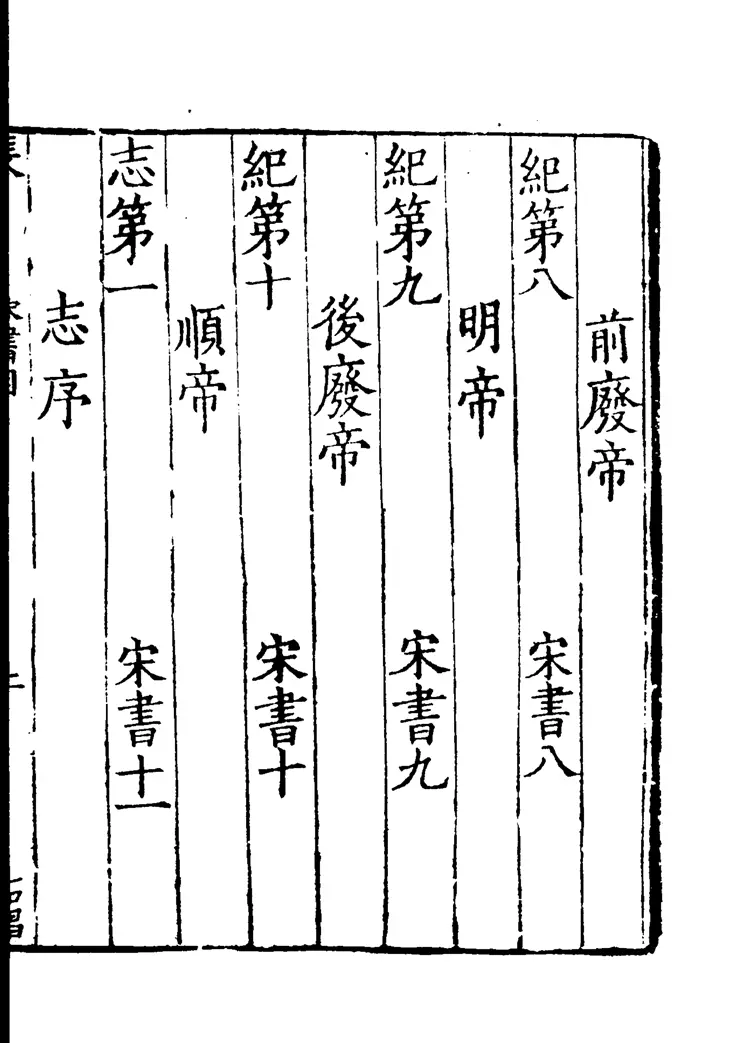 前廢帝
紀第八 宋書八
明帝
紀第九 宋書九
後廢帝
紀第十 宋書十
順帝
志第一 宋書十一
志序